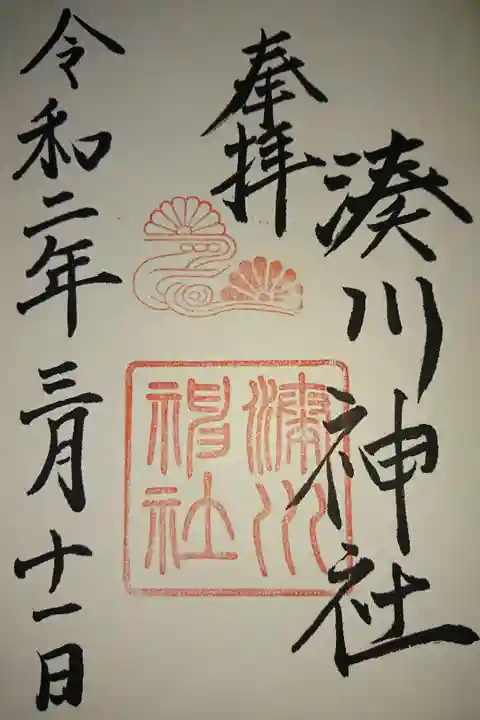 奉拝
湊川神社
湊川
神社
令和二年三月十一日